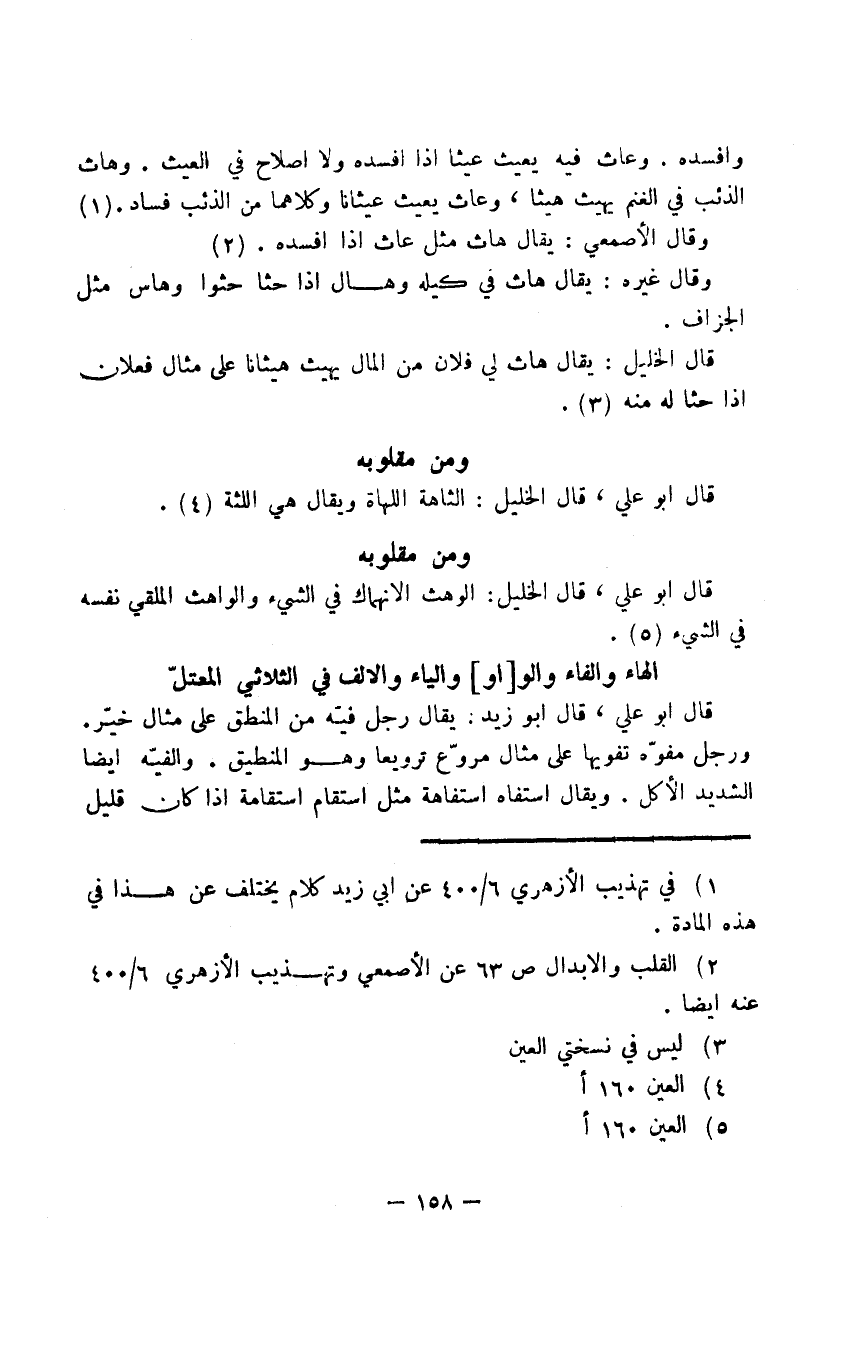 وافسده . وعاث فيه يعيث عيثا اذا افسده ولا اصلاح في العيث . وهاث
الذئب في الغنم يهيث هيثا ، وعاث يعيث عيثانا وكلاهما من الذئب فساد.(١)
وقال الأصمعي : يقال هاث مثل عاث اذا افسده . (٢)
وقال غيره : يقال هاث في كيله وهـــال اذا حثا حثوا وهاس مثل
الجزاف .
قال الخليل : يقال هاث لي فلان من المال يهيث هيثانا على مثال فعلان
اذا حثا له منه (٣) .
ومن مقلوبه
قال ابو علي ، قال الخليل : الثاهة اللهاة ويقال هي اللثة (٤) .
ومن مقلوبه
قال ابو علي ، قال الخليل: الوهث الانهماك في الشيء والواهث الملقي نفسه
في الشيء (٥) .
الهاء والفاء والو[او] والياء والالف في الثلاثي المعتلّ
قال ابو علي ، قال ابو زيد : يقال رجل فيّه من المنطق على مثال خيّر.
ورجل مفوّه تفويها على مثال مروّع ترويعا وهـــو المنطيق . والفيّه ايضا
الشديد الأكل . ويقال استفاه استفاهة مثل استقام استقامة اذا كان قليل
١) في تهذيب الأزهري ٤٠٠/٦ عن ابي زيد كلام يختلف عن هـــذا في
هذه المادة .
٢) القلب والابدال ص ٦٣ عن الأصمعي وتهـــذيب الأزهري ٤٠٠/٦
عنه ايضا .
٣) ليس في نسختي العين
٤) العين ١٦٠ أ
٥) العين ١٦٠ أ
— ١٥٨ —